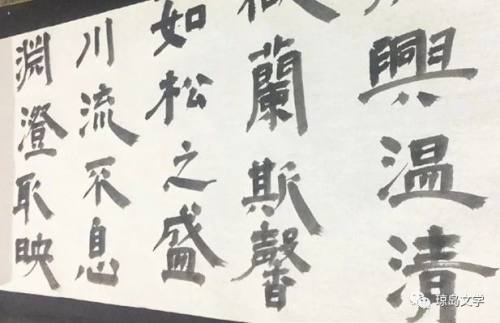 興温清
蘭斯馨
如松之盛
川流不息
淵澄取映
琼岛文学